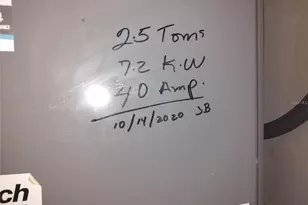 2.5 Toms
7.2 K.W
40 Amp.
10/14/2020 JB
ch